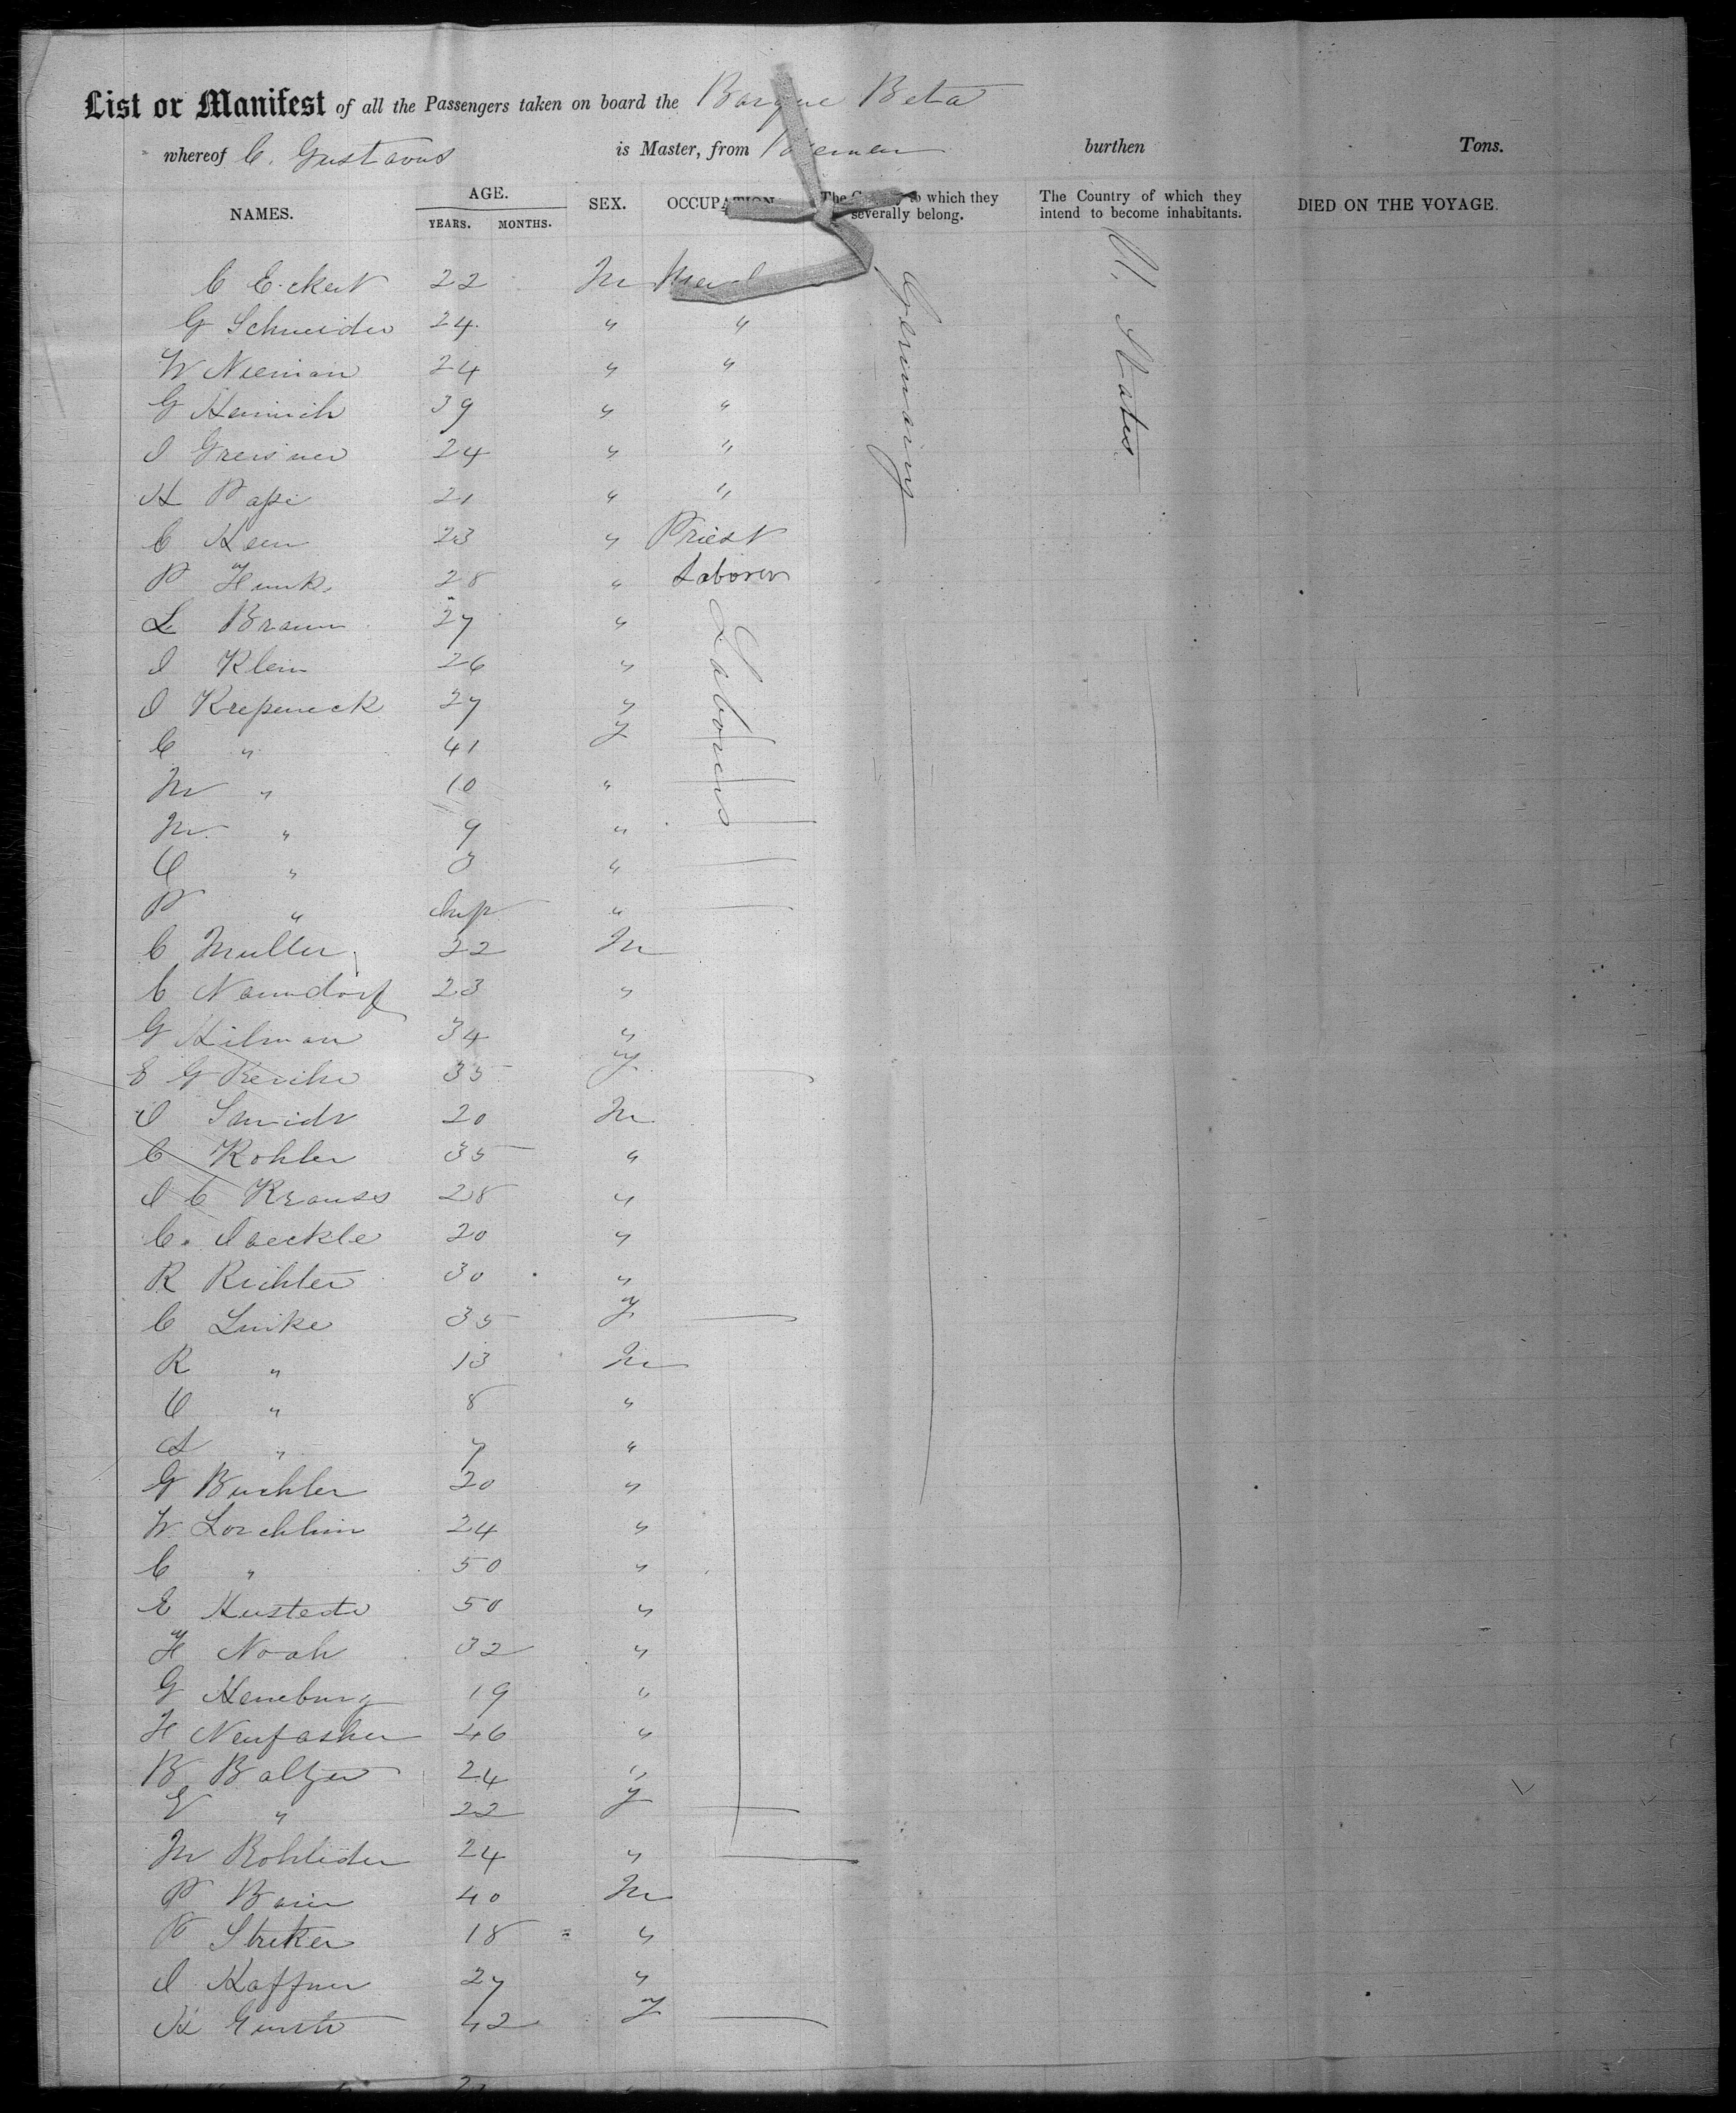 List or Manifest of all the Passengers taken on board the Barque Beta
whereof C. Gustavus is Master, from Bremen burthen Tons.
NAMES. AGE. YEARS. MONTHS. SEX. OCCUPATION The to which they severally belong. The Country of which they intend to become inhabitants. DIED ON THE VOYAGE.
C Eckert 22 M
G Schneider 24 " "
W Nieman 24 " "
G Heinrich 39 " "
I Greisner 24 " "
H Pape 21 " "
C 23 " Priest
P Hunk 28 " Laborer
L Braun 27 "
I Klein 26 "
I Krepeneck 27 "
C " 41 F
M " 10 "
M " 9 "
C " 3 "
P " Inf "
C Muller 22 M
C Naundorf 23 "
G Hilman 34 "
E G 35 F
I Smidt 20 M
C Kohler 35 "
I C Krauss 28 "
C. Jaeckle 20 "
R Richter 30 "
C Linke 35 F
R " 13 M
O " 8 "
A " 7 "
G Buchler 20 "
W 24 "
C " 50 "
E Hustedt 50 "
F Noah 32 "
G Heneburg 19 "
H 46 "
B Baltzer 24 "
E " 22 F
M Rohleder 24 "
P 40 M
P Striker 18 "
I Haffner 27 "
H 42 F
Laborers
Germany
U. States